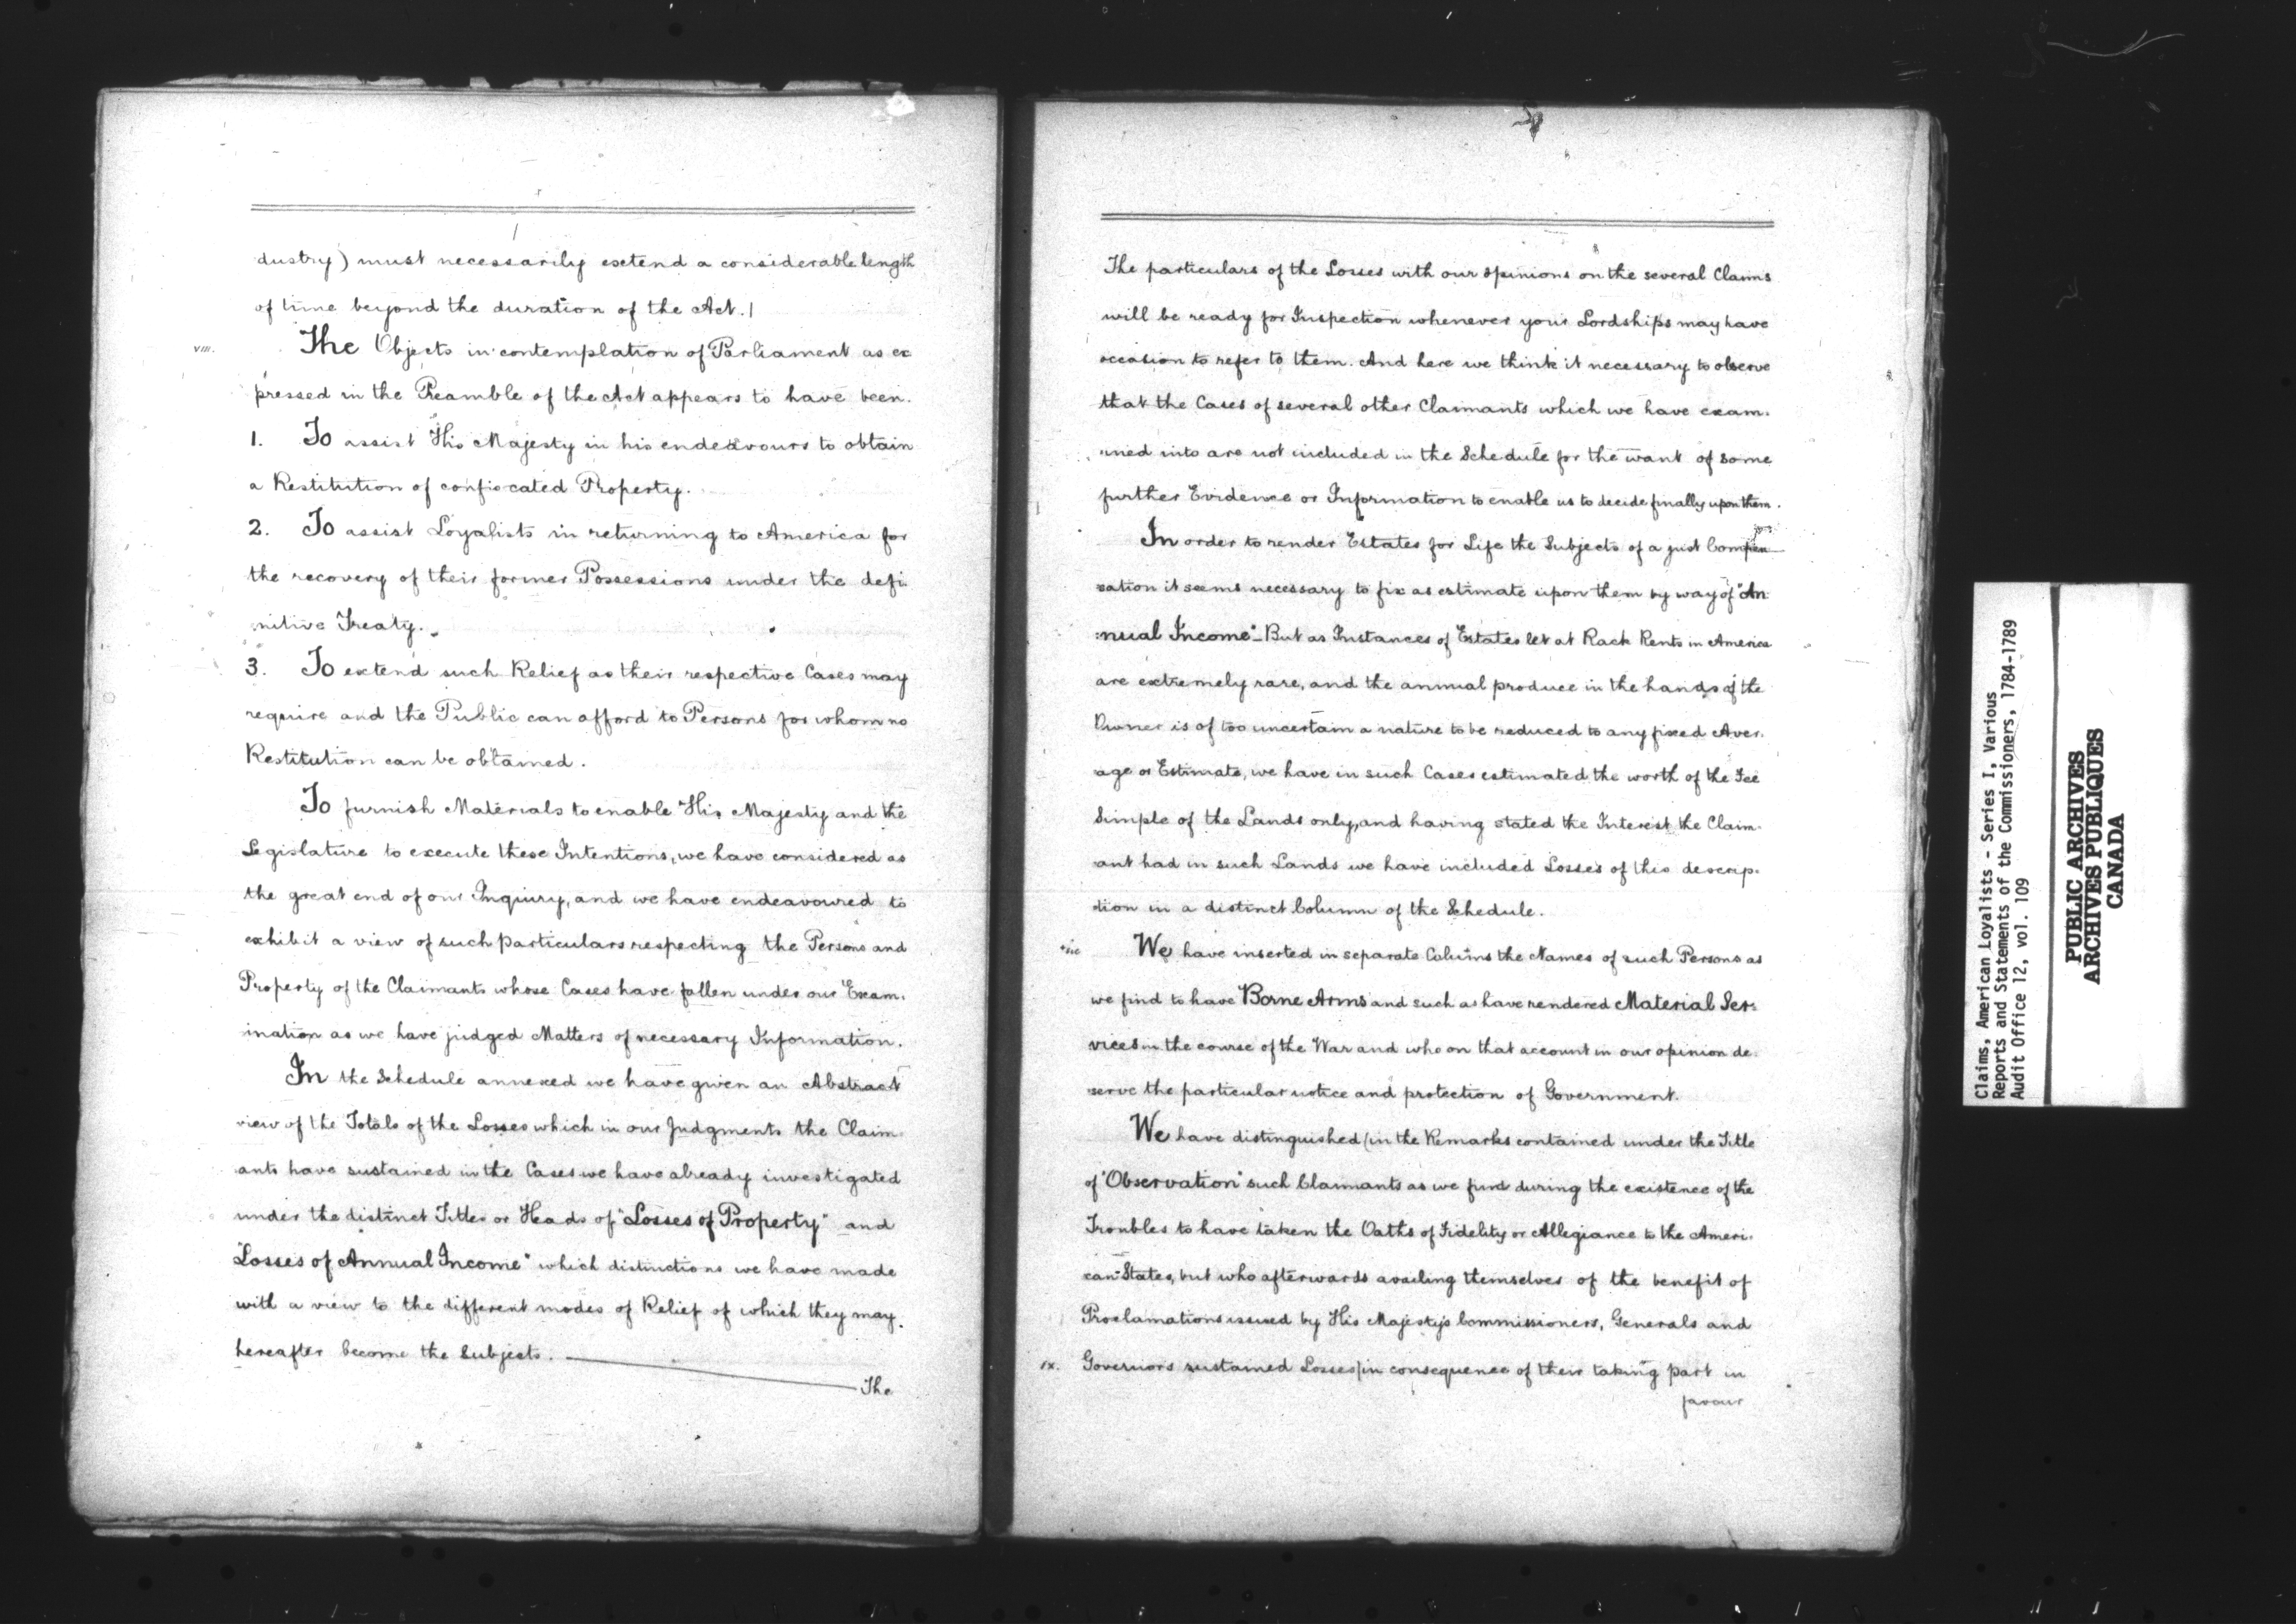 dustry) must necessarily extend a considerable length
of time beyond the duration of the Act. |
viii.
The Objects in contemplation of Parliament as ex
pressed in the Preamble of the Act appears to have been.
1. To assist His Majesty in his endeavours to obtain
a Restitution of confiscated Property.
2. To assist Loyalists in returning to America for
the recovery of their former Possessions under the defi
nitive Treaty.
3. To extend such Relief as their respective Cases may
require and the Public can afford to Persons for whom no
Restitution can be obtained.
To furnish Materials to enable His Majesty and the
Legislature to execute these Intentions, we have considered as
the great end of our Inquiry, and we have endeavoured to
exhibit a view of such particulars respecting the Persons and
Property of the Claimants whose Cases have fallen under our Exam.
ination as we have judged Matters of necessary Information.
In the Schedule annexed we have given an Abstract
view of the Totals of the Losses which in our Judgments the Claim
ants have sustained in the Cases we have already investigated
under the distinct Titles or Heads of "Losses of Property" and
"Losses of Annual Income" which distinctions we have made
with a view to the different modes of Relief of which they may
hereafter become the Subjects.
The
The particulars of the Losses with our opinions on the several Claims
will be ready for Inspection whenever your Lordships may have
occasion to refer to them. And here we think it necessary to observe
that the Cases of several other Claimants which we have exam.
ined into are not included in the Schedule for the want of some
further Evidence or Information to enable us to decide finally upon them.
In order to render Estates for Life the Subjects of a just Compen
sation it seems necessary to fix as estimate upon them by way of "An
nual Income" - But as Instances of Estates let at Rack Rents in America
are extremely rare, and the annual produce in the hands of the
Owner is of too uncertain a nature to be reduced to any fixed Aver.
age or Estimate, we have in such Cases estimated the worth of the Fee
Simple of the Lands only, and having stated the Interest the Claim.
ant had in such Lands we have included Losses of this descrip.
tion in a distinct Column of the Schedule.
*sic
We have inserted in separate Colums the Names of such Persons as
we find to have Borne Arms and such as have rendered Material Ser:
vices in the course of the War and who on that account in our opinion de.
serve the particular notice and protection of Government.
We have distinguished (in the Remarks contained under the Title
of "Observation" such Claimants as we find during the existence of the
Troubles to have taken the Oaths of Fidelity or Allegiance to the Ameri.
can States, but who afterwards availing themselves of the benefit of
Proclamations issued by His Majesty's Commissioners, Generals and
ix. Governors sustained Losses | in consequence of their taking part in
favour
Claims, American Loyalists - Series I, Various
Reports and Statements of the Commissioners, 1784-1789
Audit Office 12, vol. 109
PUBLIC ARCHIVES
ARCHIVES PUBLIQUES
CANADA